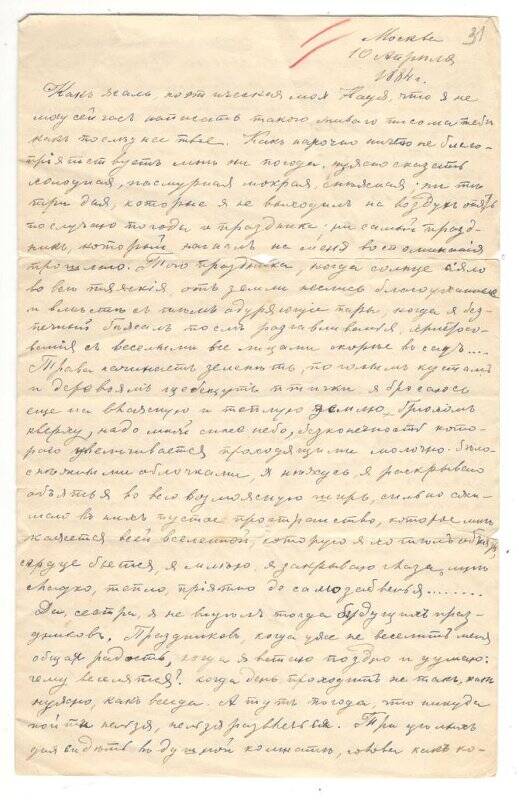 31
Москва
10 Апрѣля
1884 г.
Какъ жаль, поэтическая моя Надя, что я не
могу сейчасъ написать такого живаго письма тебѣ
какъ послѣднее твое. Какъ нарочно ничто не благо-
пріятствуетъ мнѣ ни погода, нужно сказать
холодная, пасмурная мокрая, ни тѣ
три дня, которые я не выходилъ на воздухъ
послучаю погоды и праздника; ни самый празд-
никъ, который нагналъ на меня воспоминанія
прошлаго. Того праздника, когда солнце сіяло
во всю отъ земли неслись благоуханные
и вмѣстѣ съ тѣмъ одуряющіе пары, когда я без-
печный бѣжалъ послѣ разгавливанья,
съ веселыми все лицами скорѣе въ садъ....
Трава начинаетъ зеленѣть, по голымъ кустамъ
и деревьямъ щебечутъ птички я бросаюсь
еще на влажную и теплую землю, брюхомъ
кверху, надо мной синее небо, безконечность кото-
раго увеличивается проходящими молочно-бѣло-
снѣжными облачками, я нѣжусь, я раскрываю
объятья во всю возможную ширь, сильно сжи-
маю въ нихъ пустое пространство, которое мнѣ
кажется всей вселенной, которую я хотѣлъ обнять,
сердце бьется, я млѣю, я закрываю глаза, мнѣ
сладко, тепло, пріятно до самозабвенья........
Да, сестра, я не видѣлъ тогда будущихъ праз-
дниковъ. Праздниковъ, когда уже не веселитъ меня
общая радость, когда я встаю поздно и думаю:
чему веселятся? когда день проходитъ не такъ, какъ
нужно, какъ всегда. А тутъ погода, что никуда
пойти нельзя, нельзя развлечься. Три цѣлыхъ
дня сидѣть въ душной комнатѣ, голова какъ ко-